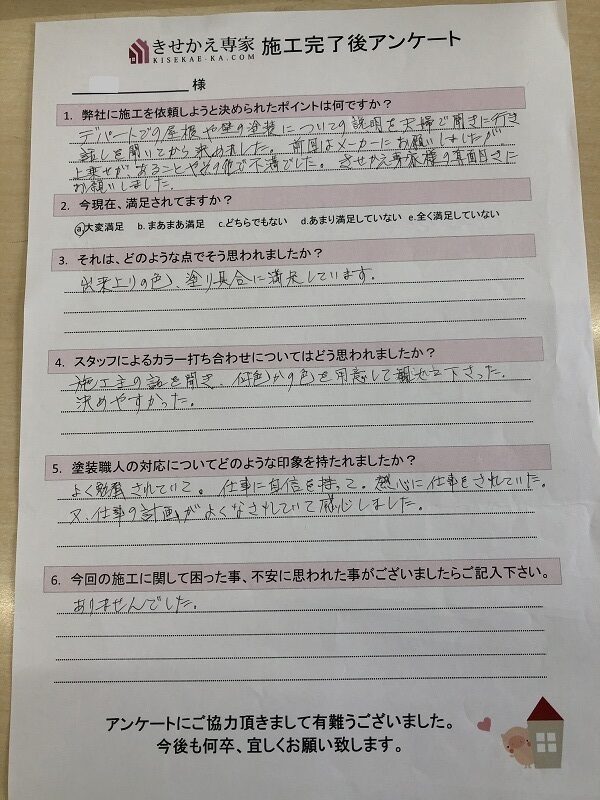 きせかえ専家 施工完了後アンケート
KISEKAE-KA.COM
様
1. 弊社に施工を依頼しようと決められたポイントは何ですか?
デパートでの屋根や壁の塗装についての説明を夫婦で聞きに行き
話しを聞いてから決めました。前回はメーカーにお願いしましたが
上乗せが、あることやその色で不満でした。きせかえ専家様の真面目さに
お願いしました。
2. 今現在、満足されてますか?
a.大変満足 b.まあまあ満足 c.どちらでもない d.あまり満足していない e.全く満足していない
3. それは、どのような点でそう思われましたか?
出来上りの色、塗り具合に満足しています。
4. スタッフによるカラー打ち合わせについてはどう思われましたか?
施工主の話を聞き、何色かの色を用意して 下さった。
決めやすかった。
5. 塗装職人の対応についてどのような印象を持たれましたか?
よく勉強されていて。仕事に自信を持って。熱心に仕事をされていた。
又、仕事の計画がよくなされていて感心しました。
6. 今回の施工に関して困った事、不安に思われた事がございましたらご記入下さい。
ありませんでした。
アンケートにご協力頂きまして有難うございました。
今後も何卒、宜しくお願い致します。